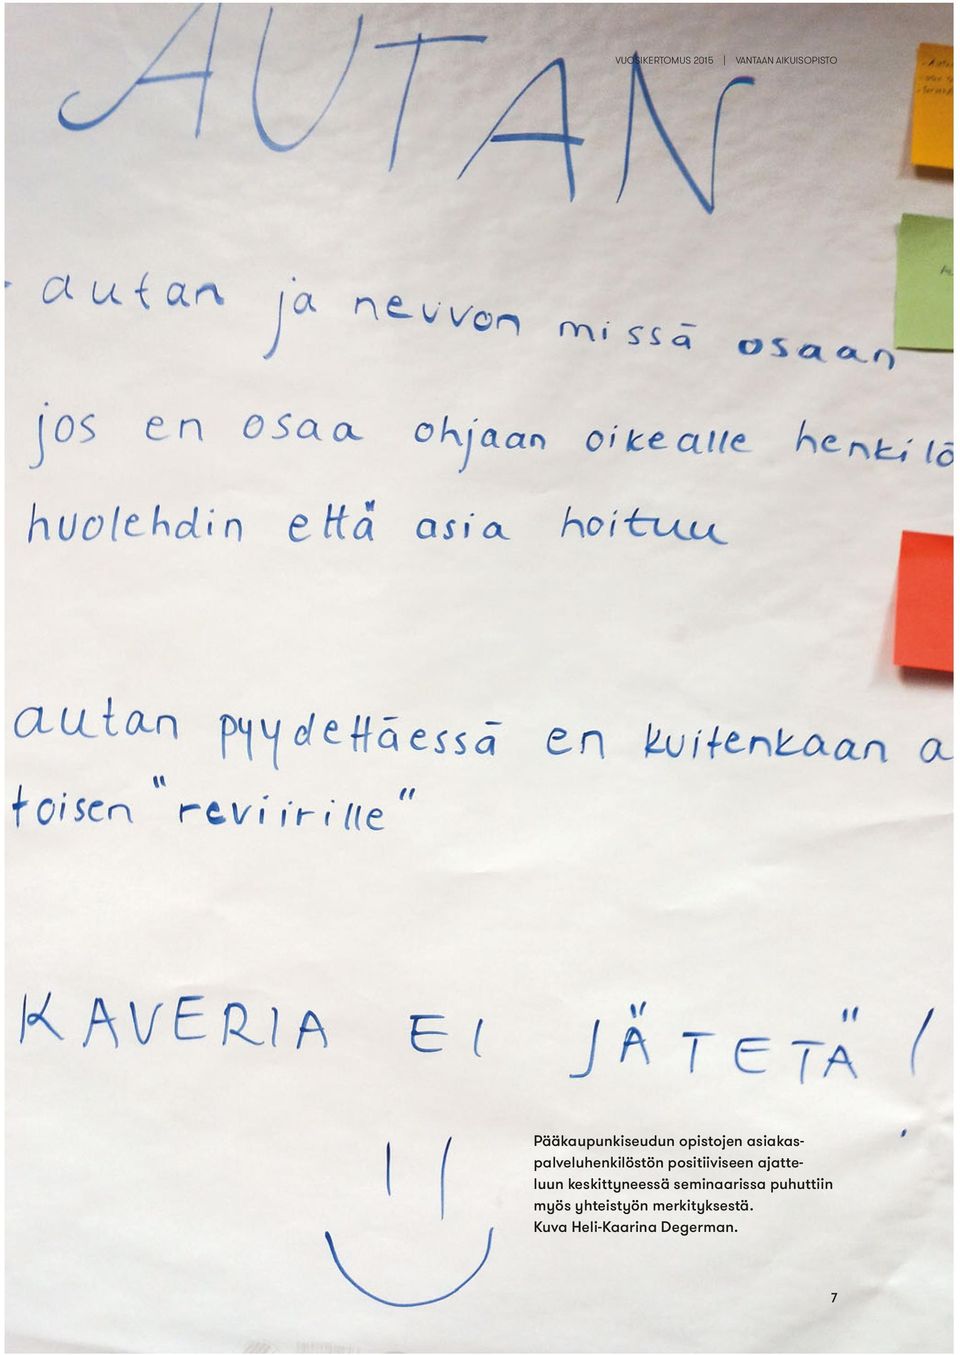 VUOSIKERTOMUS 2015 | VANTAAN AIKUISOPISTO
AUTAN
- autan ja neuvon missä osaan
jos en osaa ohjaan oikealle henkilö
huolehdin että asia hoituu
autan pyydettäessä en kuitenkaan a
toisen "reviirille"
KAVERIA EI JÄTETÄ!
Pääkaupunkiseudun opistojen asiakas-
palveluhenkilöstön positiiviseen ajatte-
luun keskittyneessä seminaarissa puhuttiin
myös yhteistyön merkityksestä.
Kuva Heli-Kaarina Degerman.
7